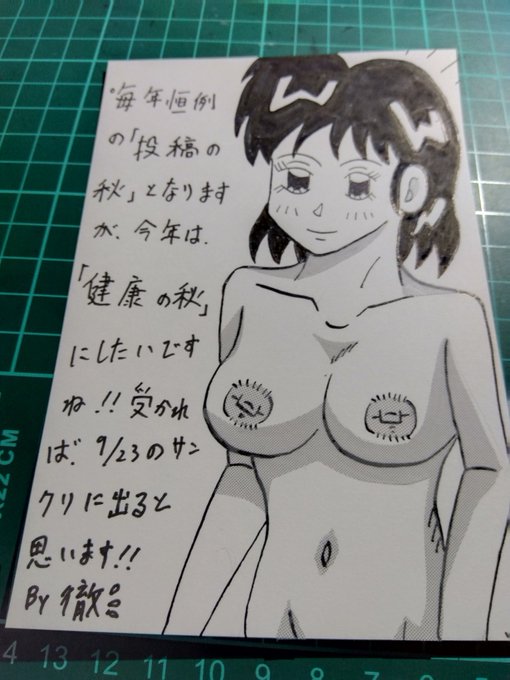 毎年恒例
の「投稿の
秋」となります
が、今年は、
「健康の秋」
にしたいです
ね!!受かれ
ば、9/23のサン
クリに出ると
思います!!
By 徹
22 CM
4 13 12 11 10 9 8 7 6